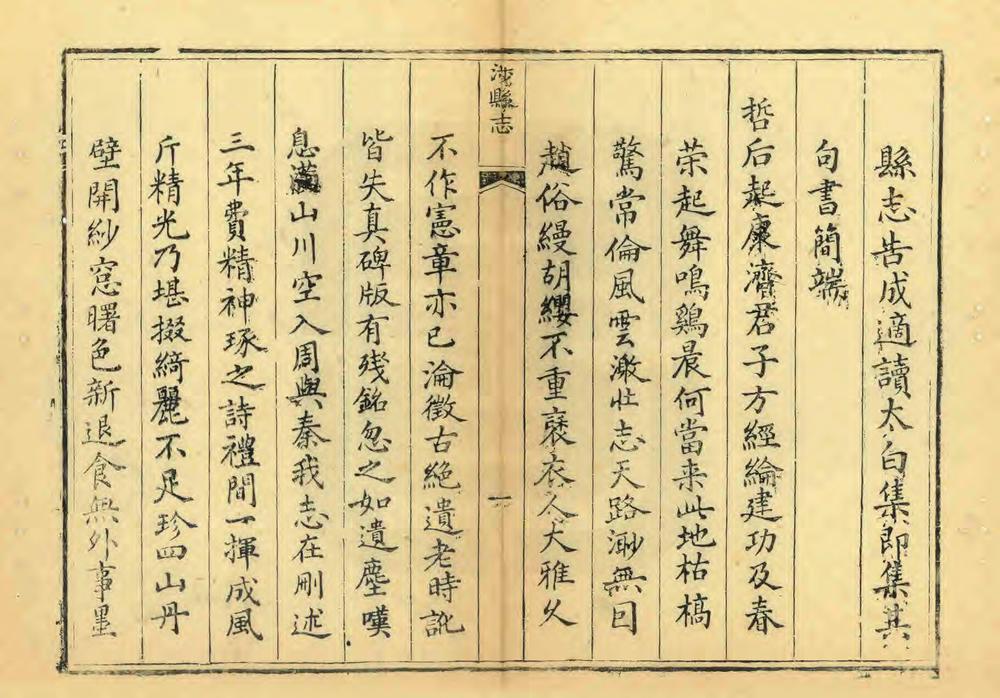 縣志告成適讀太白集即集其
句書簡端
哲后起康濟君子方經綸建功及春
荣起舞鳴鷄晨何當来此地枯槁
驚常倫風雲激壯志天路渺無因
趙俗縵胡纓不重褒衣人大雅久
涉縣志
一
不作憲章亦已淪徵古絶遺老時訛
皆失真碑版有殘銘忽之如遺塵嘆
息滿山川空入周與秦我志在刪述
三年費精神琢之詩禮間一揮成風
斤精光乃堪掇綺麗不足珍四山丹
壁開紗窓曙色新退食無外事墨